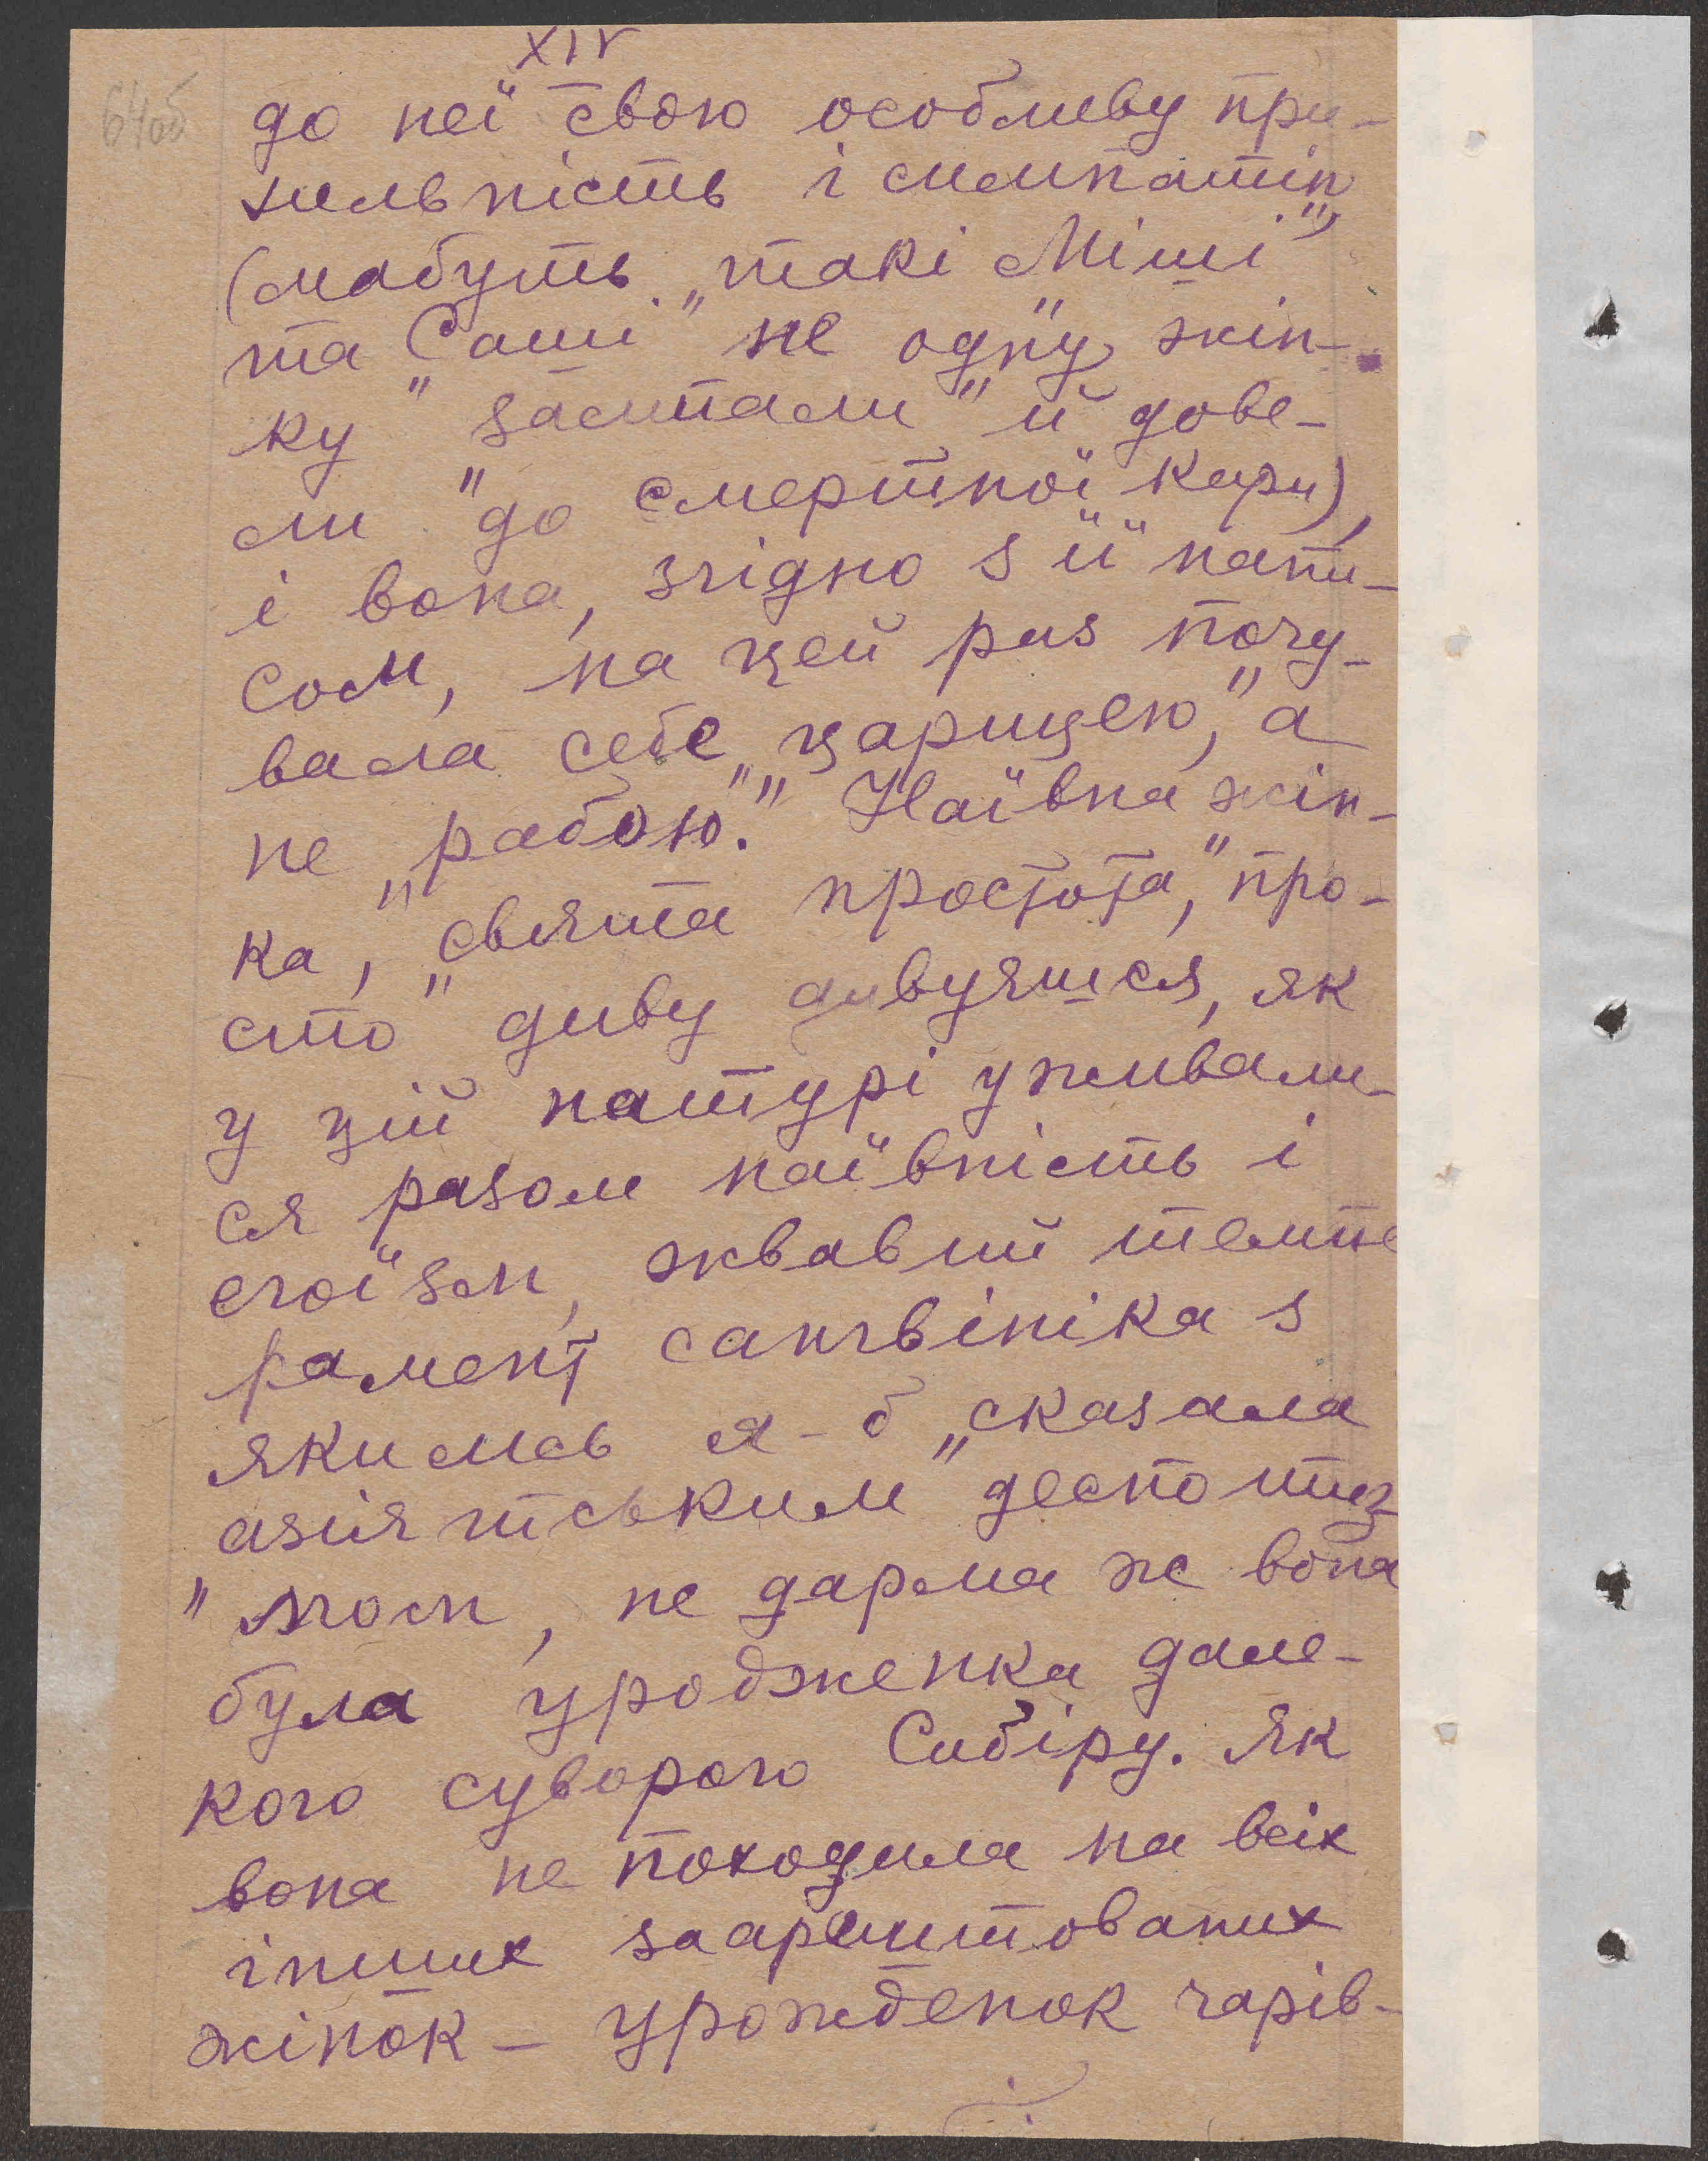 XIV
64об
до неї свою особливу при-
хильність і симпатію
(мабуть „такі Міші"
та Саші" не одну жін-
ку „засипали" й дове-
ли „до смертної кари),
і вона, згідно з її напи-
сом, на цей раз почу-
вала себе „царицею," а
не „рабою"." Наївна жін-
ка, „свята простота," про-
сто" диву дивуєшся, як
у цій натурі уживали-
ся разом наївність і
егоїзм, жвавий темпе
рамент сангвініка з
якимсь я-б „сказала
азіятським" деспотиз
"мом, не дарма же вона
була уродженка дале-
кого суворого Сибіру. Як
вона не походила на всіх
інших заарештованих
жінок – урожденок чарів-